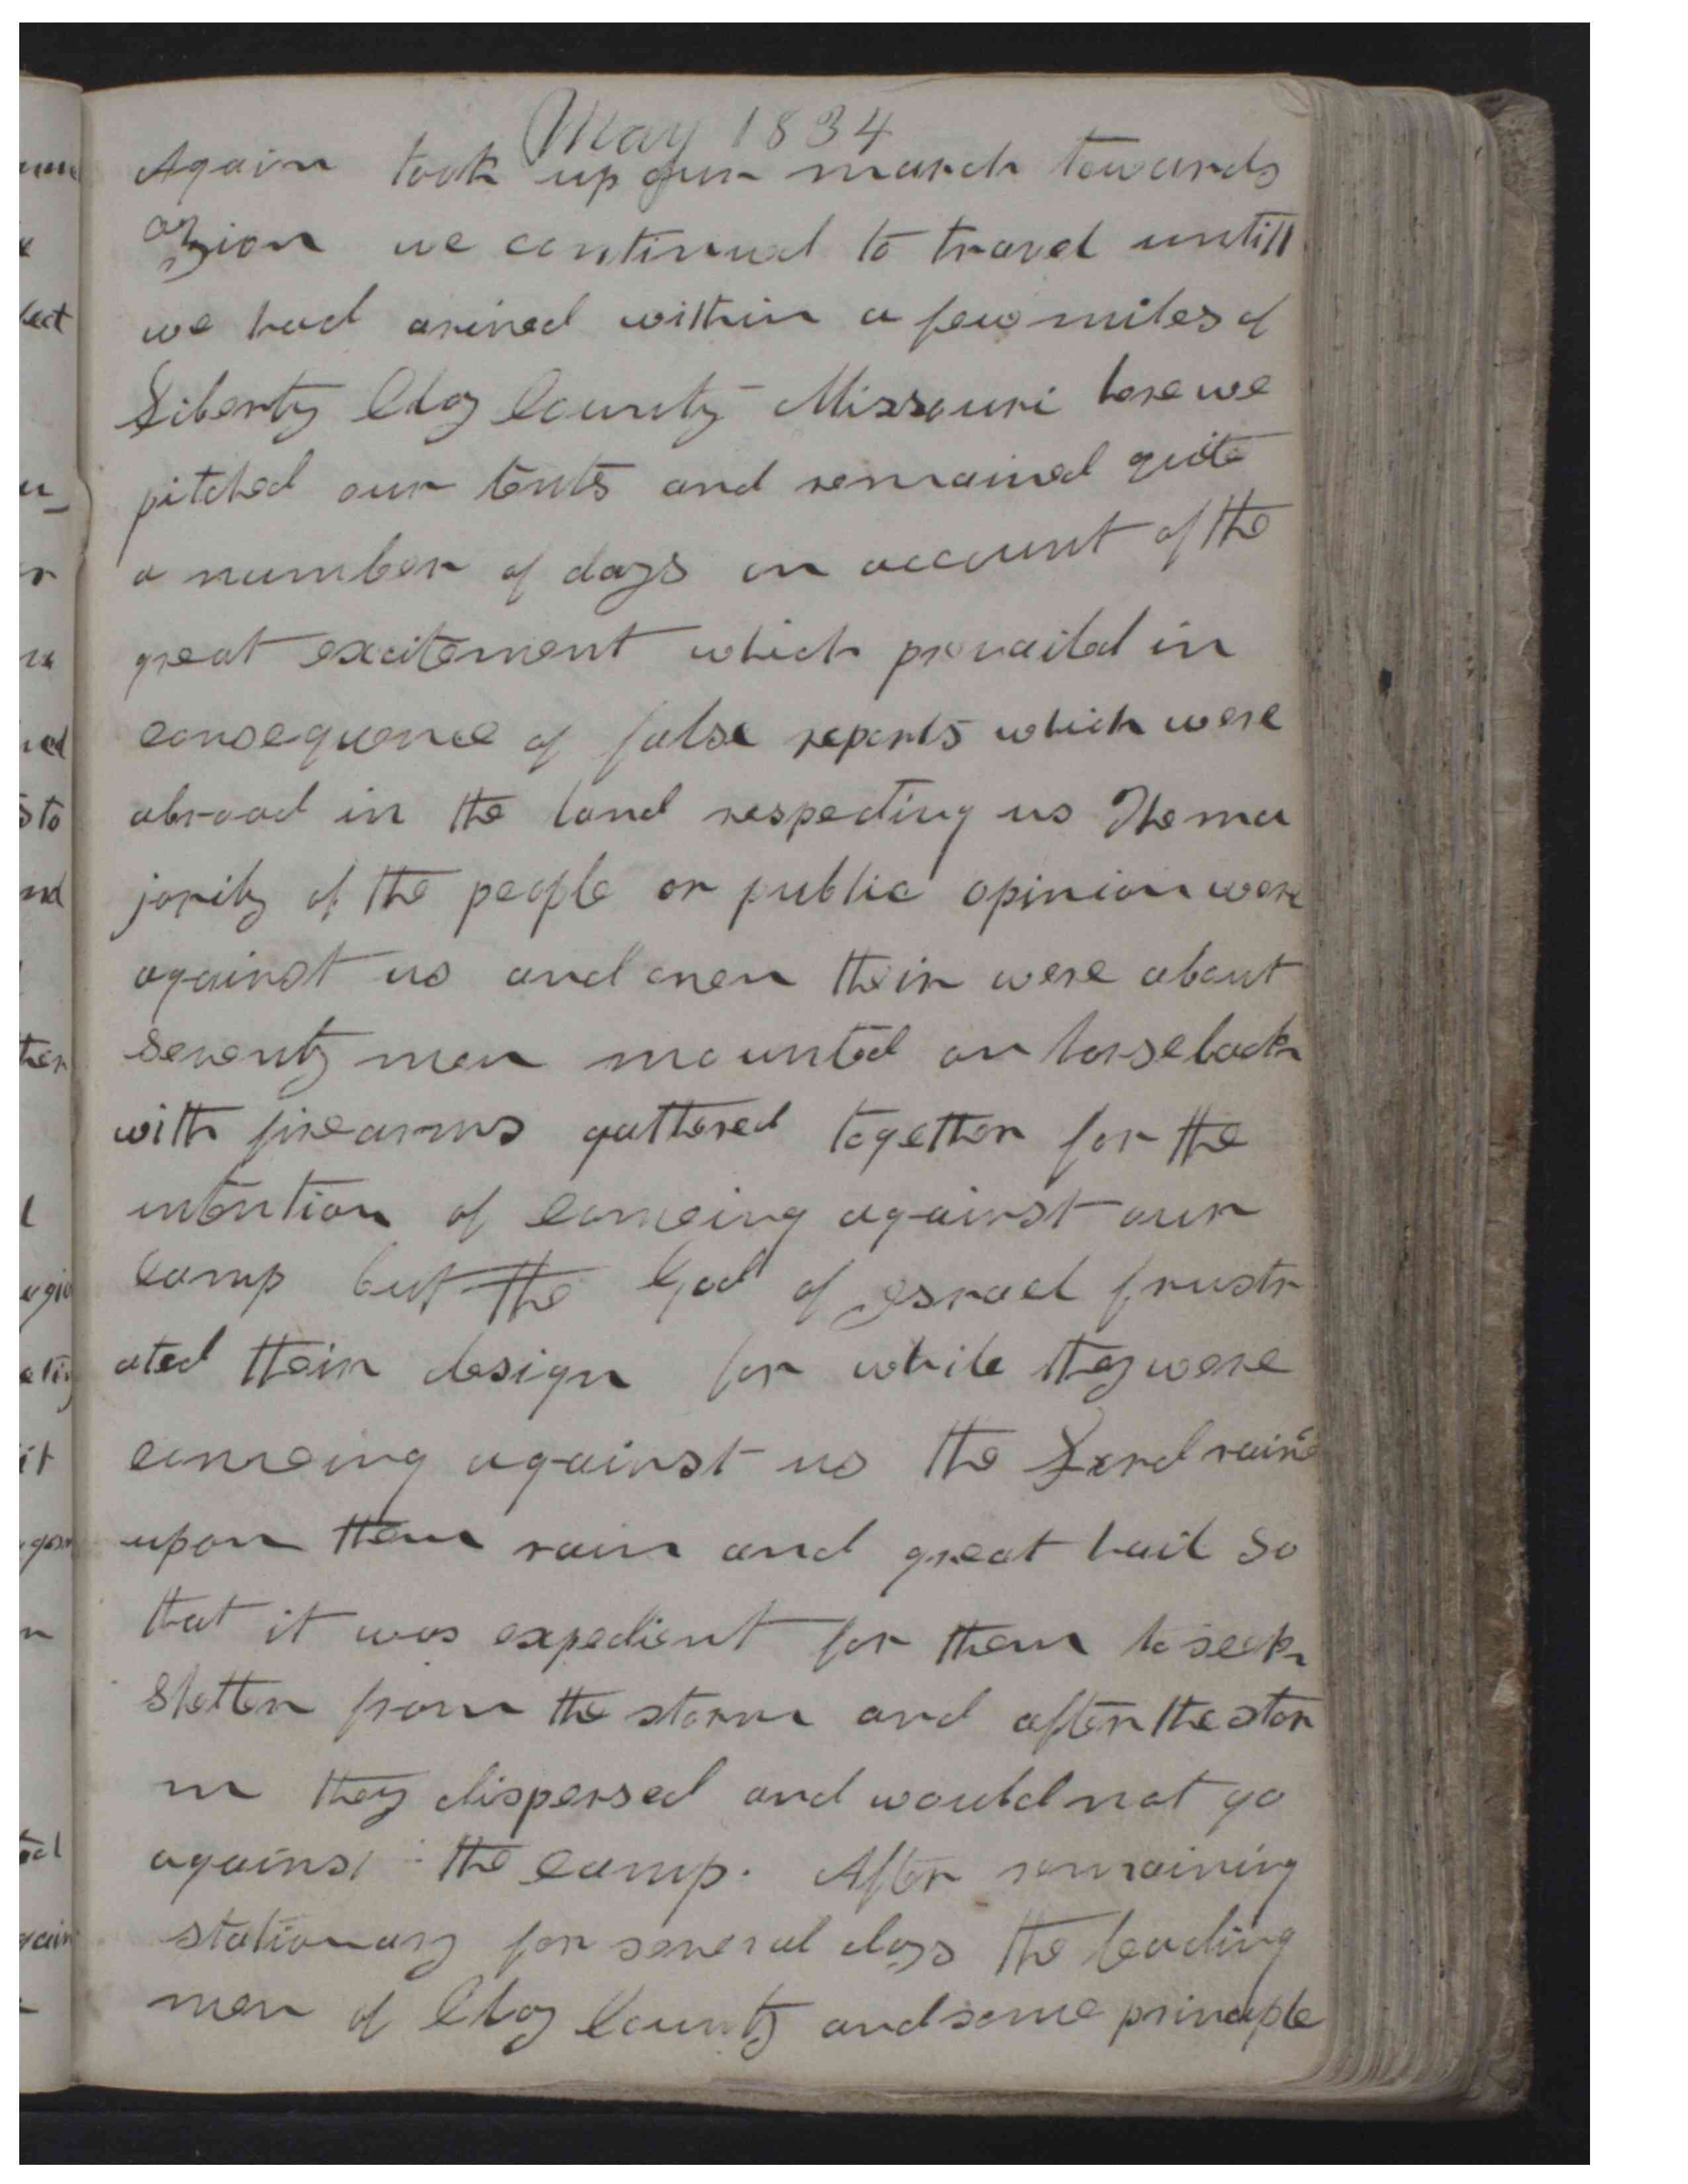 May 1834
Again took up our march towards
Zion we continued to travel untill
we had arived within a few miles of
Liberty Clay County Missouri here we
pitched our tents and remained quite
a number of days on account of the
great excitement which prevailed in
consequence of false reports which were
abroad in the land respecting us The ma
jority of the people or public opinion were
against us and even their were about
seventy men mounted on horseback
with firearms gathered together for the
intention of comeing against our
camp but the God of Israel frustr
ated their design for while they were
comeing against us the Lord raine
upon them rain and great hail so
that it was expedient for them to seek
shelter from the storm and after the stor
m they dispersed and would not go
against the camp. After remaining
stationary for several days the leading
men of Clay County and some principle